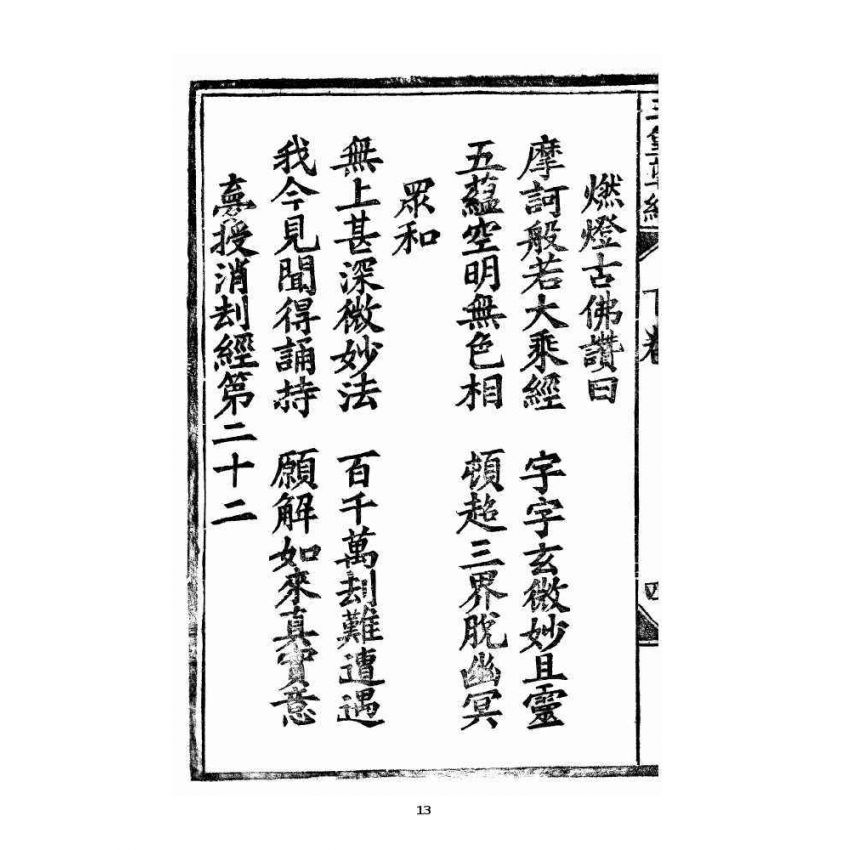 燃燈古佛讚曰
摩訶般若大乘經　字字玄微妙且靈
五蘊空明無色相　頓超三界脫幽冥
眾和
無上甚深微妙法　百千萬刦難遭遇
我今見聞得誦持　願解如來真實意
夢授消刦經第二十二
13